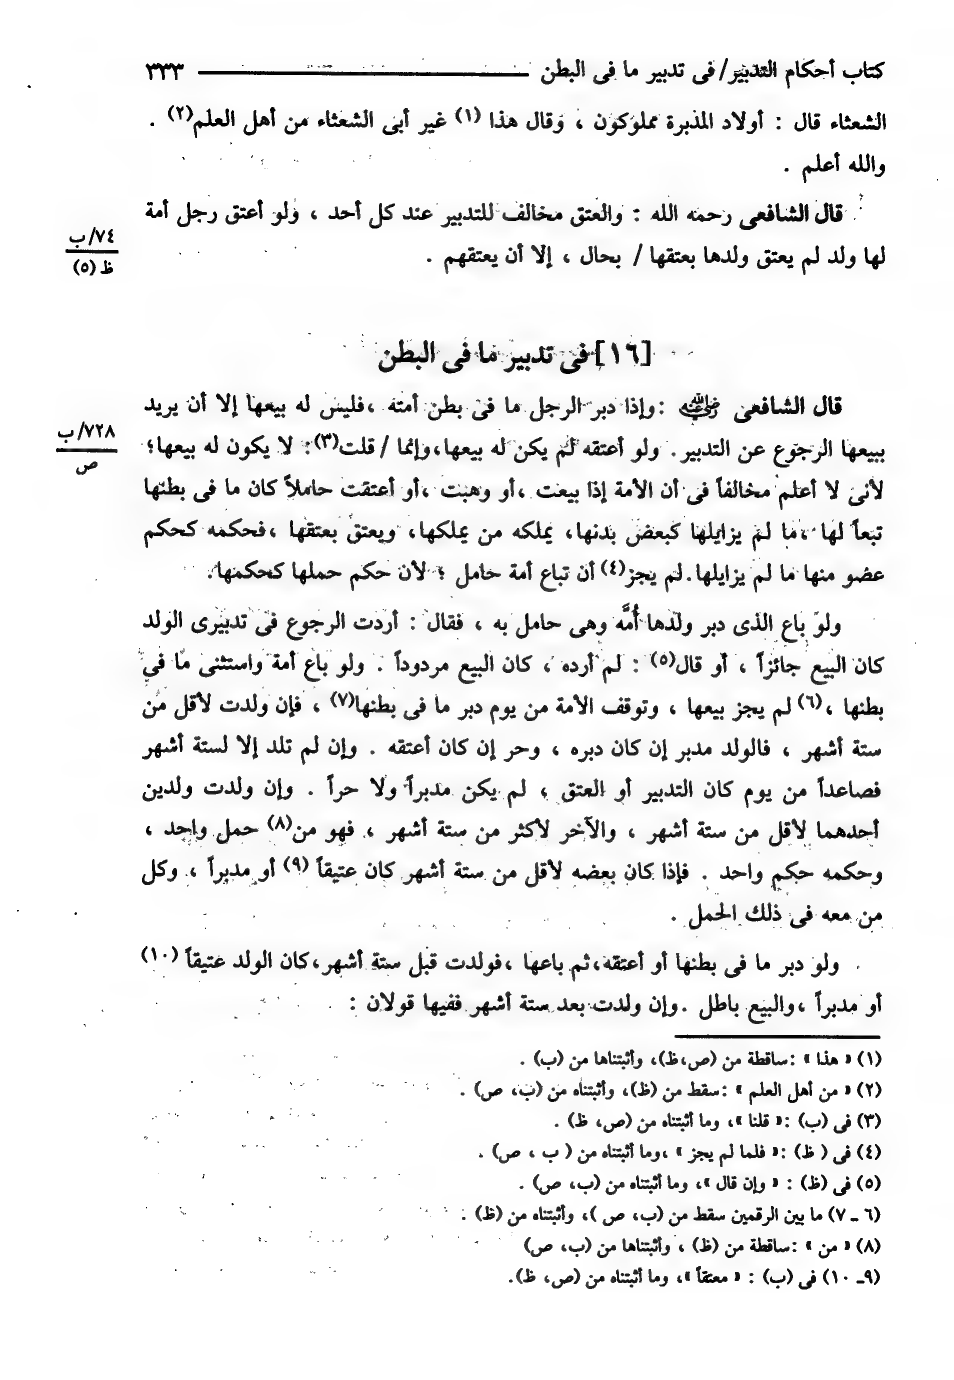 كتاب أحكام التدبير/ فى تدبير ما فى البطن ٣٣٣
الشعثاء قال : أولاد المدبرة مملوكون ، وقال هذا (١) غير أبى الشعثاء من أهل العلم(٢) .
والله أعلم .
قال الشافعى رحمه الله : والعتق مخالف للتدبير عند كل أحد ، ولو أعتق رجل أمة
٧٤/ب
لها ولد لم يعتق ولدها بعتقها / بحال ، إلا أن يعتقهم .
ظ (٥)
[١٦] فى تدبير ما فى البطن
قال الشافعى رضي الله عنه :وإذا دبر الرجل ما فى بطن أمته ،فليس له بيعها إلا أن يريد
٧٢٨/ب
ببيعها الرجوع عن التدبير. ولو أعتقه لم يكن له بيعها،وإنما / قلت(٣): لا يكون له بيعها؛
ص
لأنى لا أعلم مخالفاً فى أن الأمة إذا بيعت ،أو وهبت ،أو أعتقت حاملاً كان ما فى بطنها
تبعاً لها ،ما لم يزايلها كبعض بدنها، يملكه من يملكها، ويعتق بعتقها ،فحكمه كحكم
عضو منها ما لم يزايلها.لم يجز(٤) أن تباع أمة حامل ؛ لأن حكم حملها كحكمها.
ولو باع الذى دبر ولدها أُمَّه وهى حامل به ، فقال : أردت الرجوع فى تدبيرى الولد
كان البيع جائزاً ، أو قال(٥) : لم أرده ، كان البيع مردوداً . ولو باع أمة واستثنى ما فى
بطنها ،(٦) لم يجز بيعها ، وتوقف الأمة من يوم دبر ما فى بطنها(٧) ، فإن ولدت لأقل من
ستة أشهر ، فالولد مدبر إن كان دبره ، وحر إن كان أعتقه . وإن لم تلد إلا لستة أشهر
فصاعداً من يوم كان التدبير أو العتق ، لم يكن مدبراً ولا حراً . وإن ولدت ولدين
أحدهما لأقل من ستة أشهر ، والآخر لأكثر من ستة أشهر ، فهو من(٨) حمل واحد ،
وحكمه حكم واحد . فإذا كان بعضه لأقل من ستة أشهر كان عتيقاً (٩) أو مدبراً ، وكل
من معه فى ذلك الحمل .
ولو دبر ما فى بطنها أو أعتقه،ثم باعها ،فولدت قبل ستة أشهر،كان الولد عتيقاً (١٠)
أو مدبراً ،والبيع باطل .وإن ولدت بعد ستة أشهر ففيها قولان :
(١) « هذا » :ساقطة من (ص،ظ)، وأثبتناها من (ب) .
(٢) « من أهل العلم » :سقط من (ظ)، وأثبتناه من (ب، ص) .
(٣) فى (ب) :« قلنا »، وما أثبتناه من (ص، ظ) .
(٤) فى ( ظ) :« فلما لم يجز » ،وما أثبتناه من ( ب ، ص) .
(٥) فى (ظ) : « وإن قال »، وما أثبتناه من (ب، ص) .
(٦ ـ ٧) ما بين الرقمين سقط من (ب، ص )، وأثبتناه من (ظ) .
(٨) « من » :ساقطة من (ظ) ، وأثبتناها من (ب، ص)
(٩ـ ١٠) فى (ب) : « معتقاً »، وما أثبتناه من (ص، ظ).